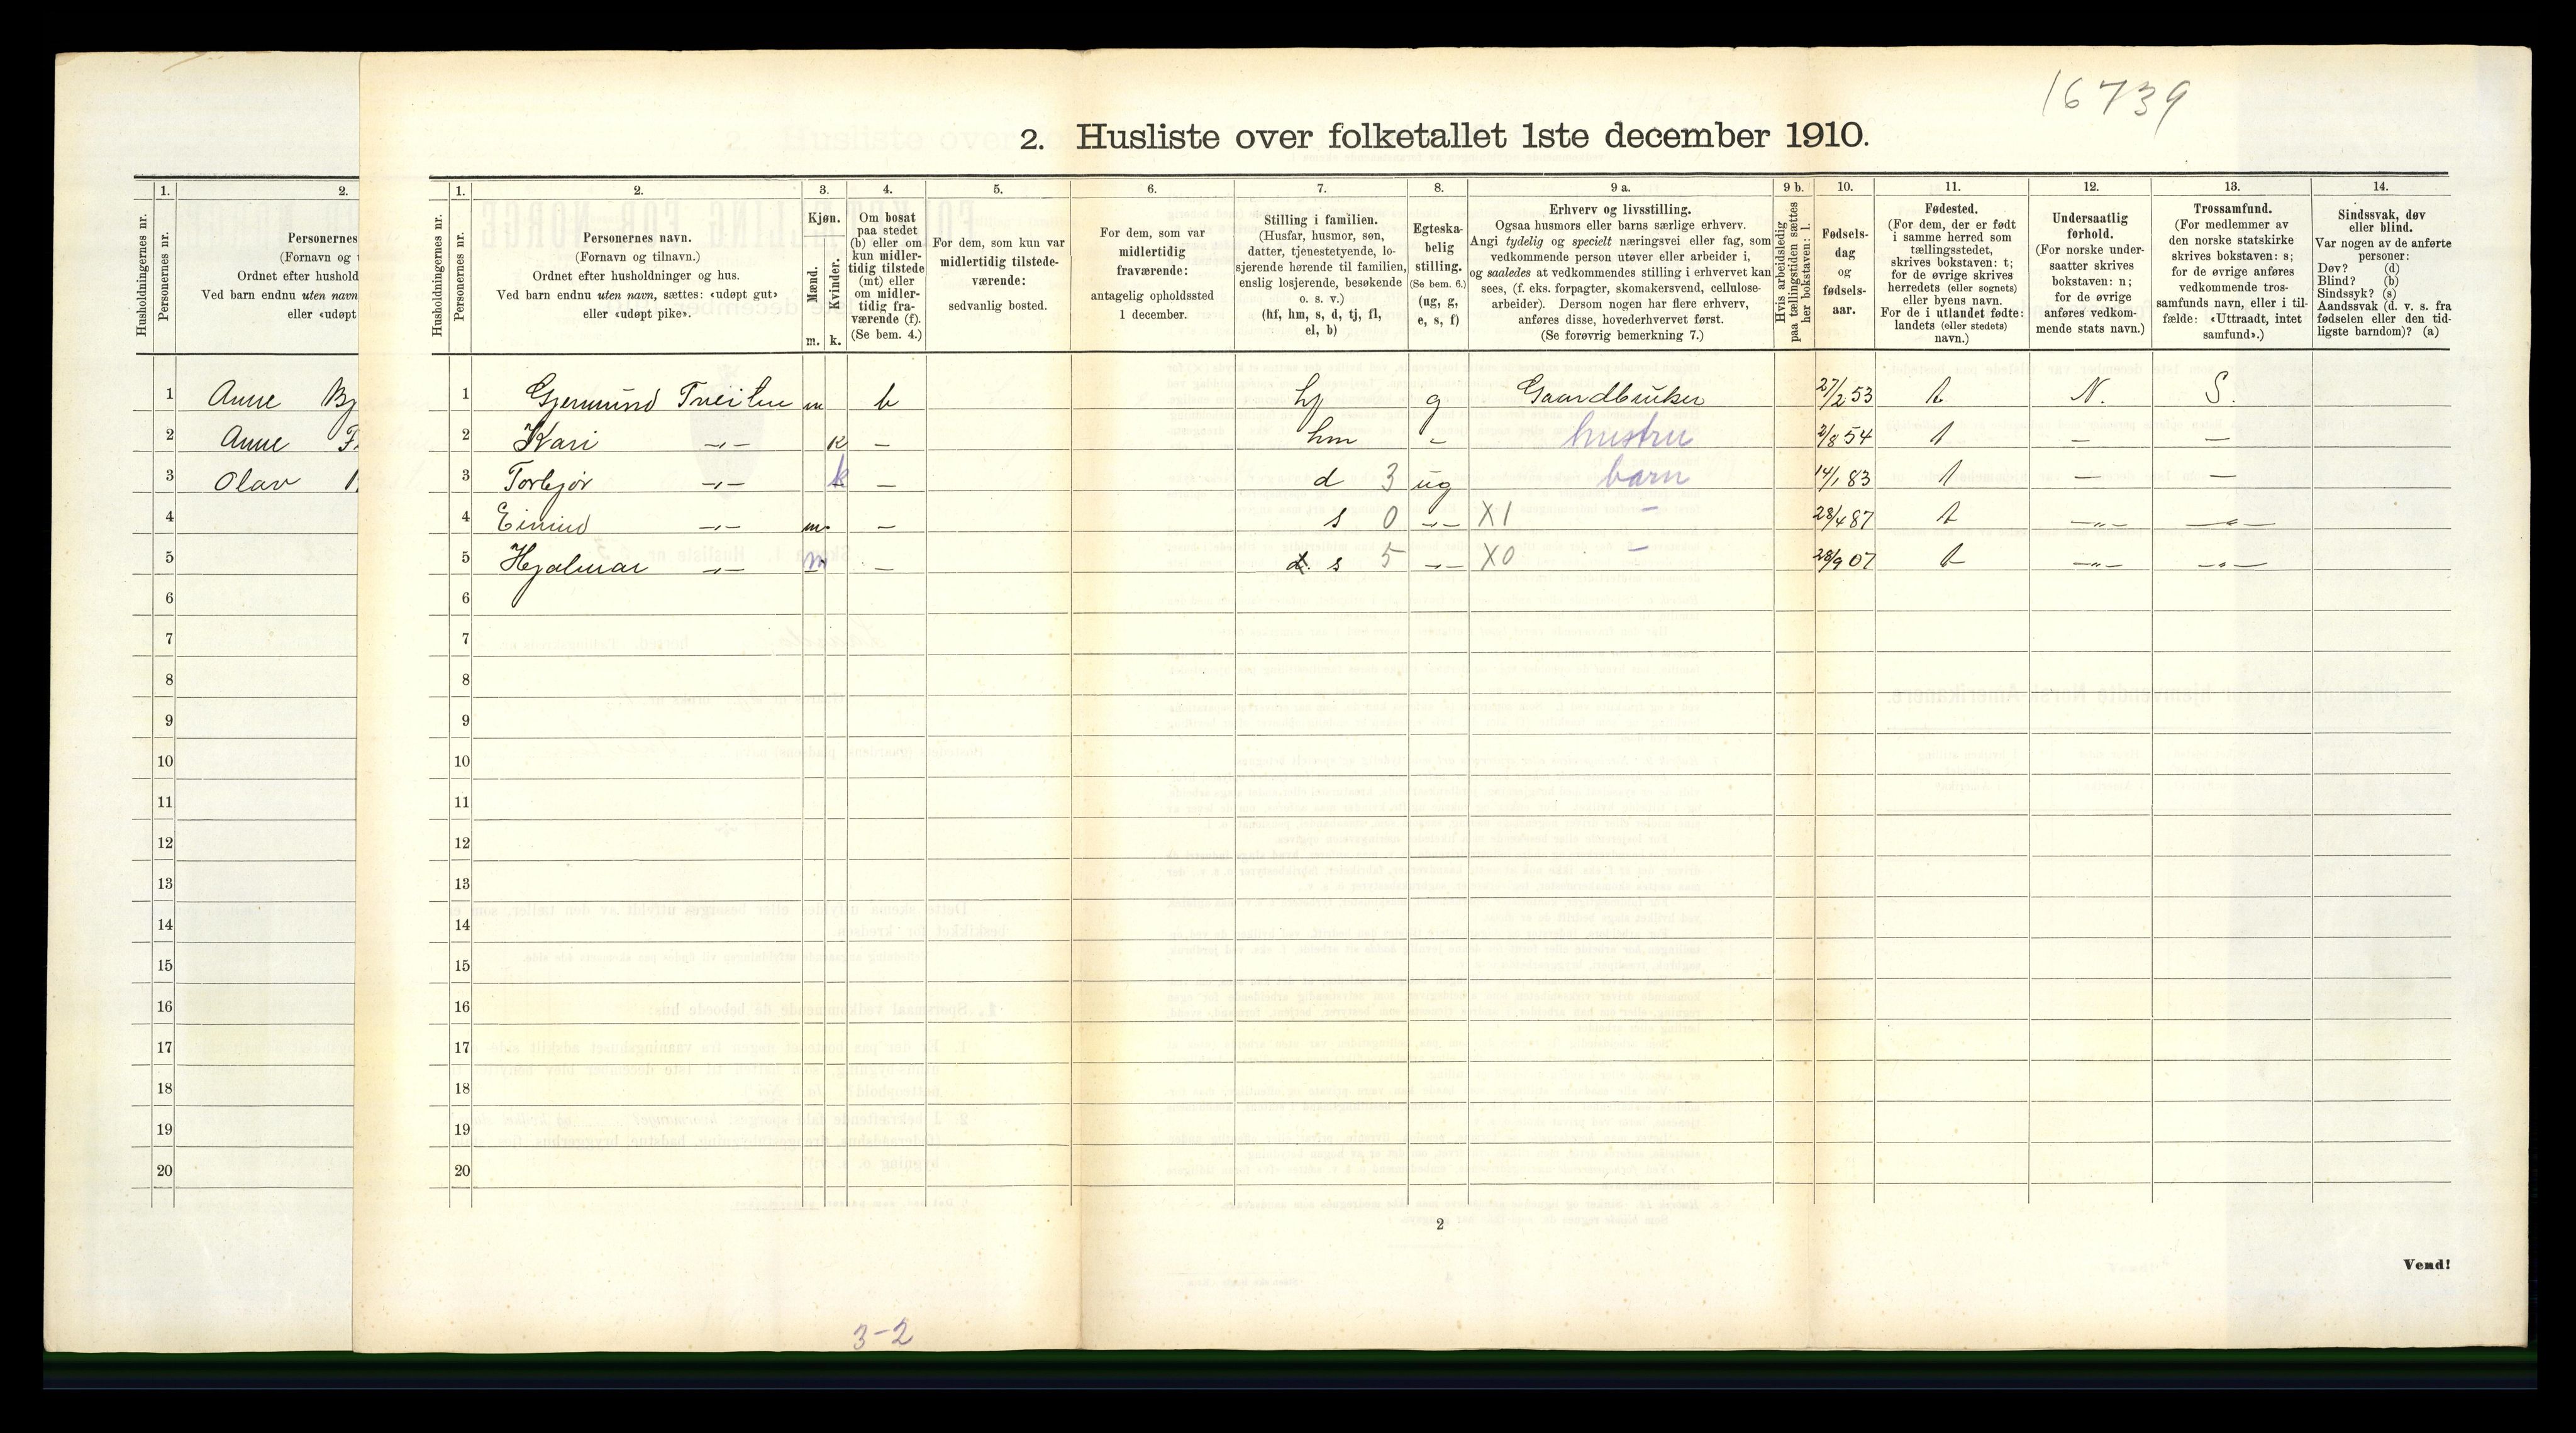 16739
2. Husliste over folketallet 1ste december 1910.
1. 2.
Husholdningernes nr.
Personernes nr.
Personernes
(Fornavn og t
Ordnet efter hushold
Ved barn endnu uten navn
eller «udøpt
1 Anne Bj
2 Anne F
3 Olav
4
5
6
7
8
9
10
11
12
13
14
15
16
17
18
19
20
1. 2. 3. 4. 5. 6. 7. 8. 9 a. 9 b. 10. 11. 12. 13. 14.
Husholdningernes nr.
Personernes nr.
Personernes navn.
(Fornavn og tilnavn.)
Ordnet efter husholdninger og hus.
Ved barn endnu uten navn, sættes: «udøpt gut»
eller «udøpt pike».
Kjøn.
Mænd.
Kvinder.
m. k.
Om bosat
paa stedet
(b) eller om
kun midler-
tidig tilstede
(mt) eller
om midler-
tidig fra-
værende (f).
(Se bem. 4.)
For dem, som kun var
midlertidig tilstede-
værende:
sedvanlig bosted.
For dem, som var
midlertidig
fraværende:
antagelig opholdssted
1 december.
Stilling i familien.
(Husfar, husmor, søn,
datter, tjenestetyende, lo-
sjerende hørende til familien,
enslig losjerende, besøkende
o. s. v.)
(hf, hm, s, d, tj, fl,
el, b)
Egteska-
belig
stilling.
(Se bem. 6.)
(ug, g,
e, s, f)
Erhverv og livsstilling.
Ogsaa husmors eller barns særlige erhverv.
Angi tydelig og specielt næringsvei eller fag, som
vedkommende person utøver eller arbeider i,
og saaledes at vedkommendes stilling i erhvervet kan
sees, (f. eks. forpagter, skomakersvend, cellulose-
arbeider). Dersom nogen har flere erhverv,
anføres disse, hovederhvervet først.
(Se forøvrig bemerkning 7.)
Hvis arbeidsledig
paa tællingstiden sættes
her bokstaven: l.
Fødsels-
dag
og
fødsels-
aar.
Fødested.
(For dem, der er født
i samme herred som
tællingsstedet,
skrives bokstaven: t;
for de øvrige skrives
herredets (eller sognets)
eller byens navn.
For de i utlandet fødte:
landets (eller stedets)
navn.)
Undersaatlig
forhold.
(For norske under-
saatter skrives
bokstaven: n;
for de øvrige
anføres vedkom-
mende stats navn.)
Trossamfund.
(For medlemmer av
den norske statskirke
skrives bokstaven: s;
for de øvrige anføres
vedkommende tros-
samfunds navn, eller i til-
fælde: «Uttraadt, intet
samfund».)
Sindssvak, døv
eller blind.
Var nogen av de anførte
personer:
Døv? (d)
Blind? (b)
Sindssyk? (s)
Aandssvak (d. v. s. fra
fødselen eller den tid-
ligste barndom)? (a)
1 Gjermund Tveiten m b hf g Gaardbruker 27/2 53 t N. S.
2 Kari -„- k - hm - hustru 2/8 54 t - -
3 Torbjør -„- k - d 3 ug barn 14/1 83 t - -
4 Eivind -„- m - s 0 -„- X1 - 28/4 87 t -„- -„-
5 Hjalmar -„- m - d. s 5 -„- X0 - 28/9 07 t -„- -„-
6
7
8
9
10
11
12
13
14
15
16
17
18
19
20
2
Vend!
3-2